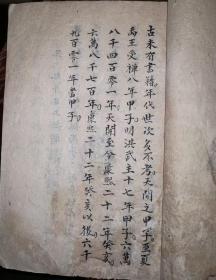 古未有書籍年代世次多不考天開之甲子至夏
禹王受禪八年甲子明洪武主十七年甲子六萬
八千四百零一年天開至今康熙二十二年癸亥
六萬八千七百年康熙二十二年癸亥以後六千
九百零一年當甲子